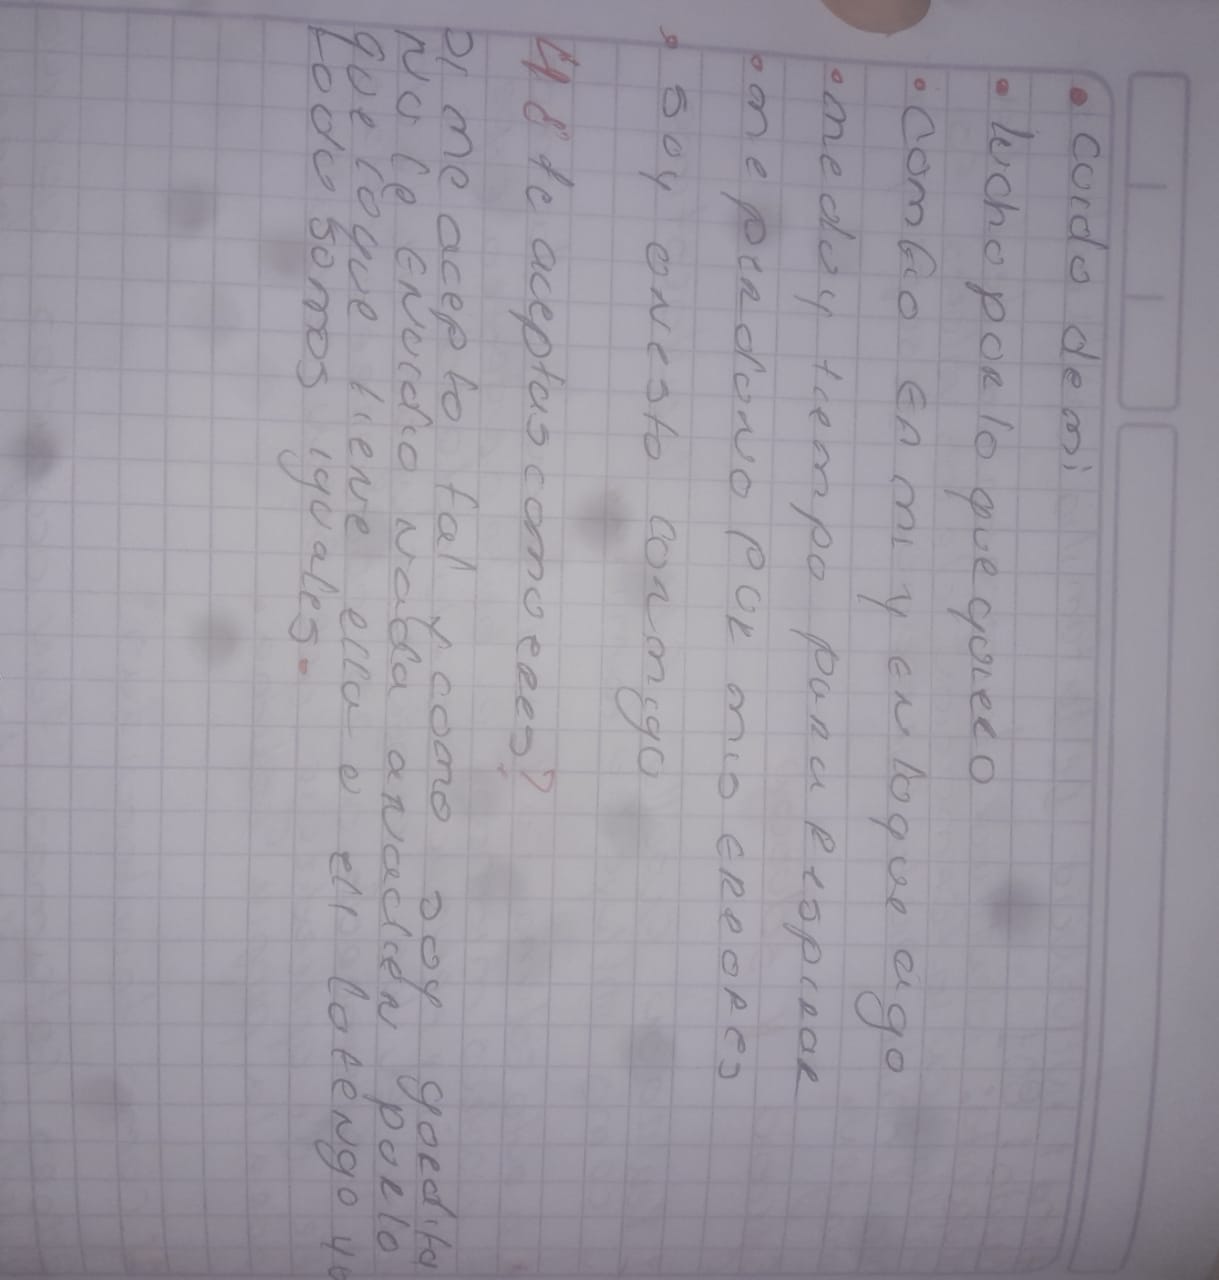 • cuido demi
• lucho por lo que quiero
• Combio En mi y en loque ago
• medoy tiempo para Respirar
• me perdono por mis errores
• soy onesto conmigo
4) ¿te aceptas como eres?
si me acepto tal y como soy gordita
No le envidio nada anadien porlo
que loque tiene ella o el lotengo yo
todo somos iguales.